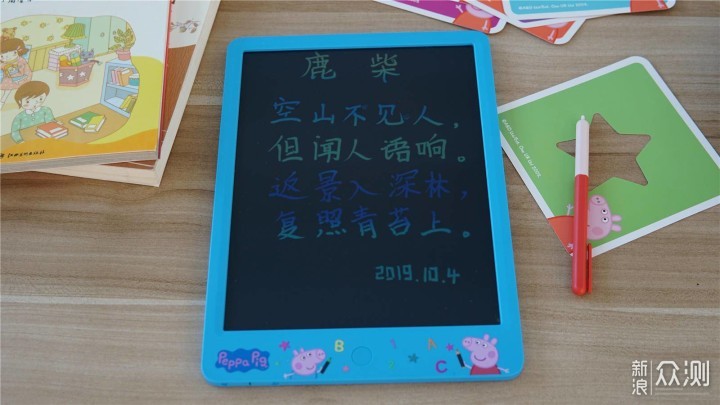 鹿柴
空山不见人，
但闻人语响。
返景入深林，
复照青苔上。
2019.10.4
Peppa Pig
B
A
C
新浪众测